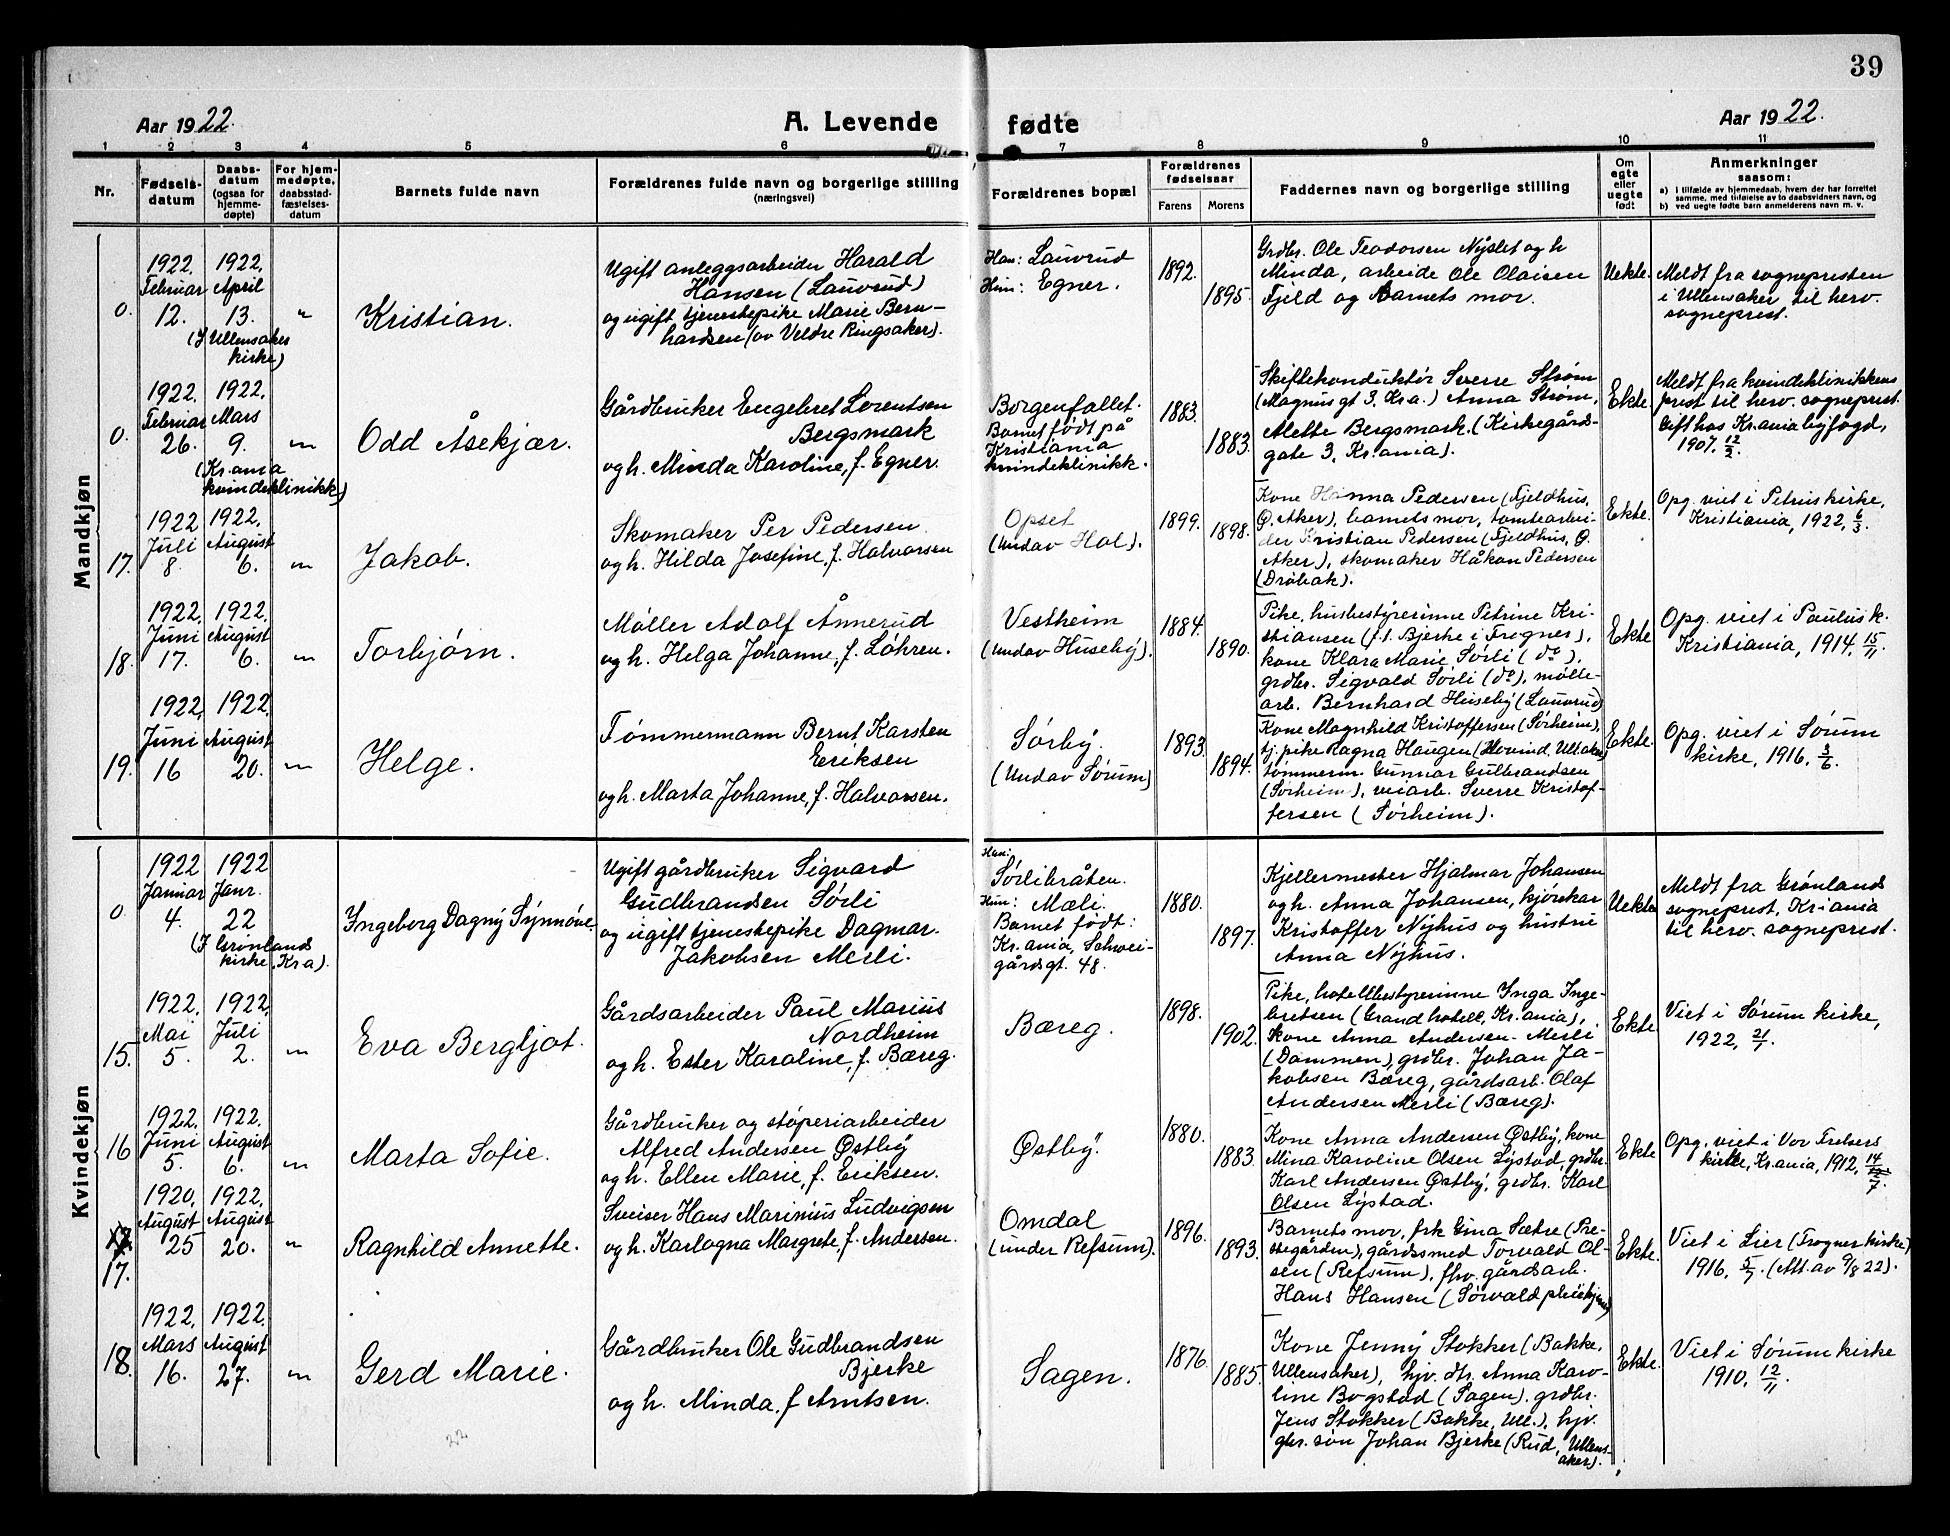 39
Aar 1922.
A. Levende
fødte
Aar 1922.
1 2 3 4 5 6 7 8 9 10 11
Nr.
Fødsels-
datum
Daabs-
datum
(ogsaa for
hjemme-
døpte)
For hjem-
medøpte,
daabsstad-
fæstelses-
datum
Barnets fulde navn
Forældrenes fulde navn og borgerlige stilling
(næringsvei)
Forældrenes bopæl
Forældrenes
fødselsaar
Farens
Morens
Faddernes navn og borgerlige stilling
Om
egte
eller
uegte
født
Anmerkninger
saasom:
a) i tilfælde av hjemmedaab, hvem der har forrettet
samme, med tilføielse av to daabsvidners navn, og
b) ved uegte fødte barn anmelderens navn m. v.
Mandkjøn
0.
1922.
Februar
12.
1922.
April
13.
(I Ullensaker
kirke)
"
Kristian.
Ugift anleggsarbeider Harald
Hansen (Lauvrud)
og ugift tjenestepike Marie Bern-
hardsen (av Veldre Ringsaker).
Han: Lauvrud
Hun: Egner.
1892.
1895.
Grdbr. Ole Teodorsen Nyslet og h
Minda, arbeide Ole Olaisen
Fjeld og barnets mor.
Uekte.
Meldt fra sognepresten
i Ullensaker til herv.
sogneprest.
0.
1922.
Februar
26.
1922.
Mars
9.
(Kr.ania
kvindeklinikk)
"
Odd Åsekjær.
Gårdbruker Engebret Lorentsen
Bergsmark
og h. Minda Karoline, f. Egner.
Borgenfallet.
Barnet født på
Kristiania
kvindeklinikk.
1883.
1883.
Skiftekonduktør Sverre Strøm
(Magnus gt 3, Kr.a.) Anna Strøm,
Alette Bergsmark. (Kirkegårds-
gate 3, Kr.ania).
Ekte.
Meldt fra kvindeklinikkens
prest til herv. sogneprest.
Gift hos Kr.ania byfogd,
1907, 12/2.
17.
1922
Juli
8.
1922.
August
6.
"
Jakob.
Skomaker Per Pedersen
og h. Hilda Josefine, f. Halvorsen
Opset
(Undav Hol).
1899.
1898.
Kone Hanna Pedersen (Fjeldhus,
Ø. Aker), barnets mor, tomtearbei-
der Kristian Pedersen (Fjeldhus, Ø.
Aker), skomaker Håkon Pedersen
(Drøbak).
Ekte.
Opg. viet i Petrus kirke,
Kristiania, 1922, 6/3.
18.
1922.
Juni
17.
1922.
August
6.
"
Torbjørn.
Møller Adolf Ånnerud
og h. Helga Johanne, f. Løhren.
Vestheim
(Undav Huseby).
1884.
1890.
Pike, husbestyrerinne Petrine Kri-
stiansen (f.t. Bjerke i Frogner),
kone Klara Marie Sørli (do),
grdbr. Sigvald Sørli (do), mølle-
arb. Bernhard Huseby (Lauvrud)
Ekte.
Opg. viet i Paulus k.
Kristiania, 1914, 15/11.
19.
1922.
Juni
16
1922.
August
20.
"
Helge.
Tømmermann Bernt Karsten
Eriksen
og h. Marta Johanne, f. Halvorsen.
Sørby.
(Undav Sørum)
1893.
1894.
Kone Magnhild Kristoffersen (Sørheim),
tj. pike Ragna Haugen (Hovind, Ullensaker)
tømmerm. Gunnar Gulbrandsen
(Sørheim), veiarb. Sverre Kristof-
fersen (Sørheim).
Ekte.
Opg. viet i Sørum
kirke, 1916, 3/6.
Kvindekjøn
0.
1922
Januar
4.
1922
Janr.
22
(I Grønlands
kirke, Kr.a).
Ingeborg Dagny Synnøve.
Ugift gårdbruker Sigvard
Gudbrandsen Sørli
og ugift tjenestepike Dagmar
Jakobsen Merli.
Han:
Sørlibråten.
Hun: Mæli.
Barnet født:
Kr.ania, Schwei-
gårdsgt. 48.
1880.
1897.
Kjellermester Hjalmar Johansen
og h. Anna Johansen, hjørekar
Kristoffer Nyhus og hustru
Anna Nyhus.
Uekte
Meldt fra Grønland
sogneprest, Kr.iania
til herv. sogneprest.
15.
1922.
Mai
5.
1922.
Juli
2.
"
Eva Bergljot.
Gårdsarbeider Paul Marius
Nordheim
og h. Ester Karoline, f. Bæreg.
Bæreg.
1898.
1902.
Pike, hotellbestyrerinne Inga Inge-
bretsen (Grand hotell, Kr.ania),
kone Anna Andersen Merli
(Dammen), grdbr. Johan Ja-
kobsen Bæreg, gårdsarb. Olaf
Andersen Merli (Bæreg).
Ekte
Viet i Sørum kirke,
1922, 21/1.
16
1922.
Juni
5.
1922.
August
6.
"
Marta Sofie.
Gårdbruker og støperiarbeider
Alfred Andersen Østby
og h. Ellen Marie, f. Eriksen.
Østby.
1880.
1883.
Kone Anna Andersen Østby, kone
Mina Karoline Olsen Lystad, grdbr.
Karl Andersen Østby, grdbr. Karl
Olsen Lystad.
Ekte
Opg. viet i Vor Frelsers
kirke, Kr.ania, 1912, 14/7
17.
1920.
August
25
1922.
August
20.
"
Ragnhild Annette.
Sveiser Hans Marinius Ludvigsen
og h. Karlogna Margrete, f. Andersen.
Omdal
(under Refsum).
1896.
1893.
Barnets mor, frk Gina Sætre (Pre-
stegården), gårdssmed Torvald Ol-
sen (Refsum), fhv. gårdsarb.
Hans Hansen (Sørvald pleiehjem)
Ekte.
Viet i Lier (Frogner kirke)
1916, 5/7. (Att. av 9/8 22).
18.
1922.
Mars
16.
1922.
August
27.
"
Gerd Marie.
Gårdbruker Ole Gudbrandsen
Bjerke
og h. Minda, f Arntsen.
Sagen.
1876.
1885.
Kone Jenny Stokker (Bakke,
Ullensaker), hjv. dtr. Anna Karo-
line Bogstad (Sagen), grdbr.
Jens Stokker (Bakke, Ull.), hjv.
gbr. søn Johan Bjerke (Rud, Ullens-
aker).
Ekte.
Viet i Sørum kirke
1910, 12/11.
22